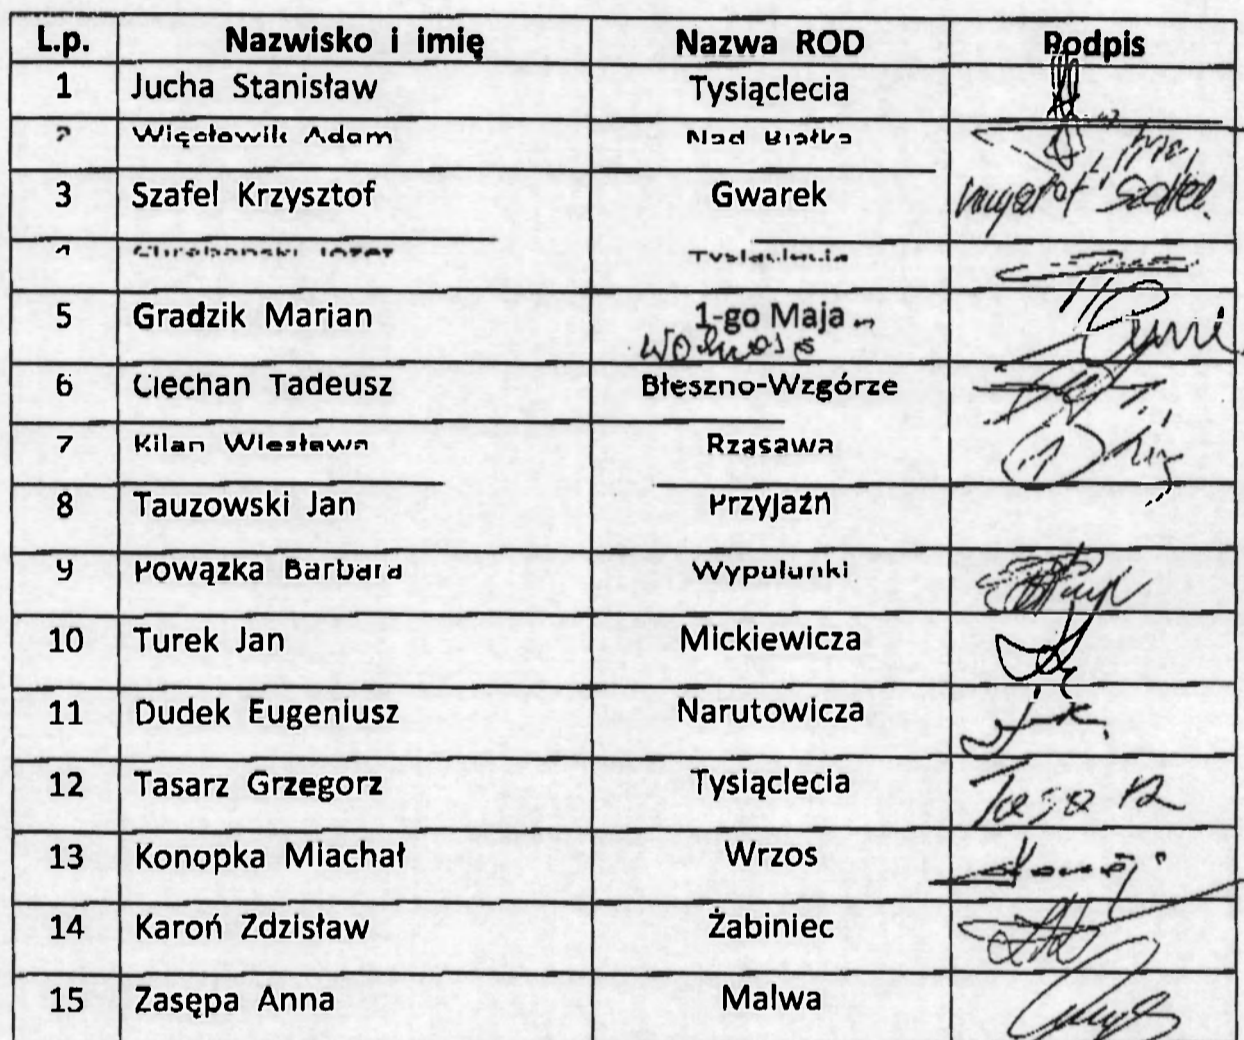 L.p. Nazwisko i imię Nazwa ROD Podpis
1 Jucha Stanisław Tysiąclecia
2 Adam Nad Białką
3 Szafel Krzysztof Gwarek
4 Józef Tysiąclecia
5 Gradzik Marian 1-go Maja
6 Ciechan Tadeusz Błeszno-Wzgórze
7 Kilan Wiesława Rząsawa
8 Tauzowski Jan Przyjaźń
9 Powązka Barbara Wypalanki
10 Turek Jan Mickiewicza
11 Dudek Eugeniusz Narutowicza
12 Tasarz Grzegorz Tysiąclecia
13 Konopka Miachał Wrzos
14 Karoń Zdzisław Żabiniec
15 Zasępa Anna Malwa